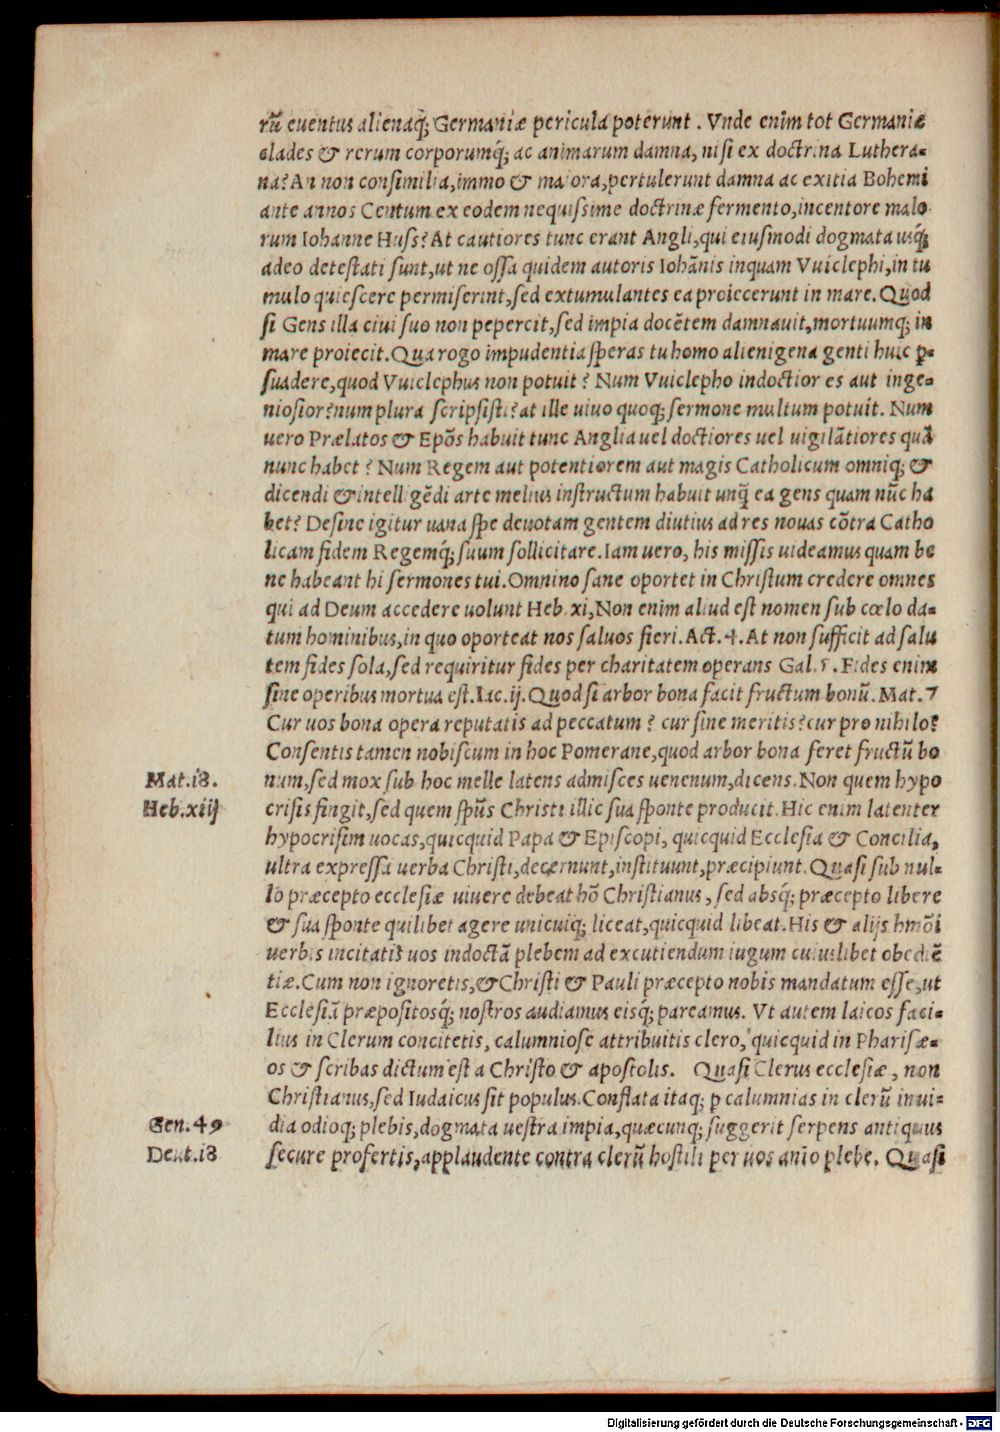 rũ euentus alienaq̃; Germaniæ pericula poterunt. Vnde enim tot Germaniæ
clades & rerum corporumq́; ac animarum damna, nisi ex doctrina Luthera-
na? An non consimilia, immo & maiora, pertulerunt damna ac exitia Bohemi
ante annos Centum ex eodem nequissime doctrinæ fermento, incentore malo
rum Iohanne Huss? At cautiores tunc erant Angli, qui eiusmodi dogmata usq́;
adeo detestati sunt, ut ne ossa quidem autoris Iohãnis inquam Vuiclephi, in tu
mulo quiescere permiserint, sed extumulantes ea proiecerunt in mare. Quod
si Gens illa ciui suo non pepercit, sed impia docẽtem damnauit, mortuumq; in
mare proiecit. Qua rogo impudentia speras tu homo alienigena genti huic ꝑ-
suadere, quod Vuiclephus non potuit? Num Vuiclepho indoctior es aut inge-
niosior? num plura scripsisti? at ille uiuo quoq; sermone multum potuit. Num
uero Prælatos & Epõs habuit tunc Anglia uel doctiores uel uigilãtiores quã
nunc habet? Num Regem aut potentiorem aut magis Catholicum omniq; &
dicendi & intelligẽdi arte melius instructum habuit unq̃ ea gens quam nũc ha
bet? Desine igitur uana spe deuotam gentem diutius ad res nouas cõtra Catho
licam fidem Regemq́; suum sollicitare. Iam uero, his missis uideamus quam be
ne habeant hi sermones tui. Omnino sane oportet in Christum credere omnes
qui ad Deum accedere uolunt Heb. xi, Non enim aliud est nomen sub cœlo da-
tum hominibus, in quo oporteat nos saluos fieri. Act. 4. At non sufficit ad salu
tem fides sola, sed requiritur fides per charitatem operans Gal. 5. Fides enim
sine operibus mortua est. Iac. ij. Quod si arbor bona facit fructum bonũ. Mat. 7
Cur uos bona opera reputatis ad peccatum? cur sine meritis? cur pro nihilo?
Consentis tamen nobiscum in hoc Pomerane, quod arbor bona feret fructũ bo
Mat. 18. num, sed mox sub hoc melle latens admisces uenenum, dicens. Non quem hypo
Heb. xiij crisis fingit, sed quem spũs Christi illic sua sponte producit. Hic enim latenter
hypocrisim uocas, quicquid Papa & Episcopi, quicquid Ecclesia & Concilia,
ultra expressa uerba Christi, decernunt, instituunt, præcipiunt. Quasi sub nul-
lo præcepto ecclesiæ uiuere debeat hõ Christianus, sed absq́; præcepto libere
& sua sponte quilibet agere unicuiq; liceat, quicquid libeat. His & alijs hmõi
uerbis incitatis uos indoctã plebem ad excutiendum iugum cuiuslibet obediẽ
tiæ. Cum non ignoretis, & Christi & Pauli præcepto nobis mandatum esse, ut
Ecclesiã præpositosq́; nostros audiamus eisq́; pareamus. Vt autem laicos faci-
lius in Clerum concitetis, calumniose attribuitis clero, quicquid in Pharisæ-
os & scribas dictum est a Christo & apostolis. Quasi Clerus ecclesiæ, non
Christianus, sed Iudaicus sit populus. Conflata itaq; ꝑ calumnias in clerũ inui-
Gen. 49 dia odioq; plebis, dogmata uestra impia, quæcunq; suggerit serpens antiquus
Deut. 18 secure profertis, applaudente contra clerũ hostili per uos anĩo plebe. Quasi
Digitalisierung gefördert durch die Deutsche Forschungsgemeinschaft - DFG